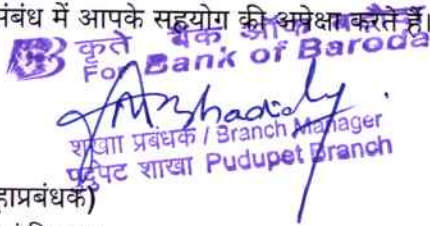 संबंध में आपके सहयोग की अपेक्षा करते हैं।
कृते बैंक ऑफ बड़ौदा
For Bank of Baroda
शाखा प्रबंधक / Branch Manager
पदुपेट शाखा Pudupet Branch
हाप्रबंधक)